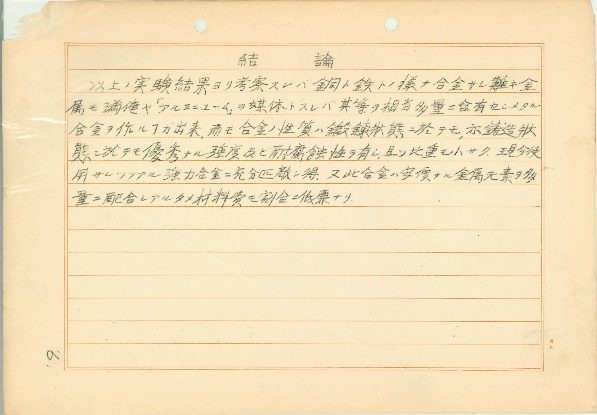 結論
以上ノ実験結果ヨリ考察スレバ銅ト鉄トノ様ナ合金サレ難キ金
属モ満俺ヤ「アルミニューム」ヲ媒体トスレバ其等ヲ相当多量ニ含有セシメタル
合金ヲ作ル事ガ出来、而モ合金ノ性質ハ鍛錬状態ニ於テモ、亦鋳造状
態ニ於テモ優秀ナル強度及ビ耐腐蝕性ヲ有し、且ツ比重モ小サク、現今使
用サレツツアル強力合金ニ充分匹敵シ得、又此合金ハ安価ナル金属元素ヲ多
量ニ配合シアルタメ材料費モ割合ニ低廉ナリ
9.